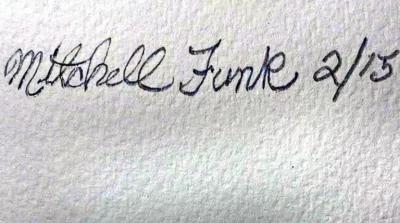 Mitchell Funk 2/15